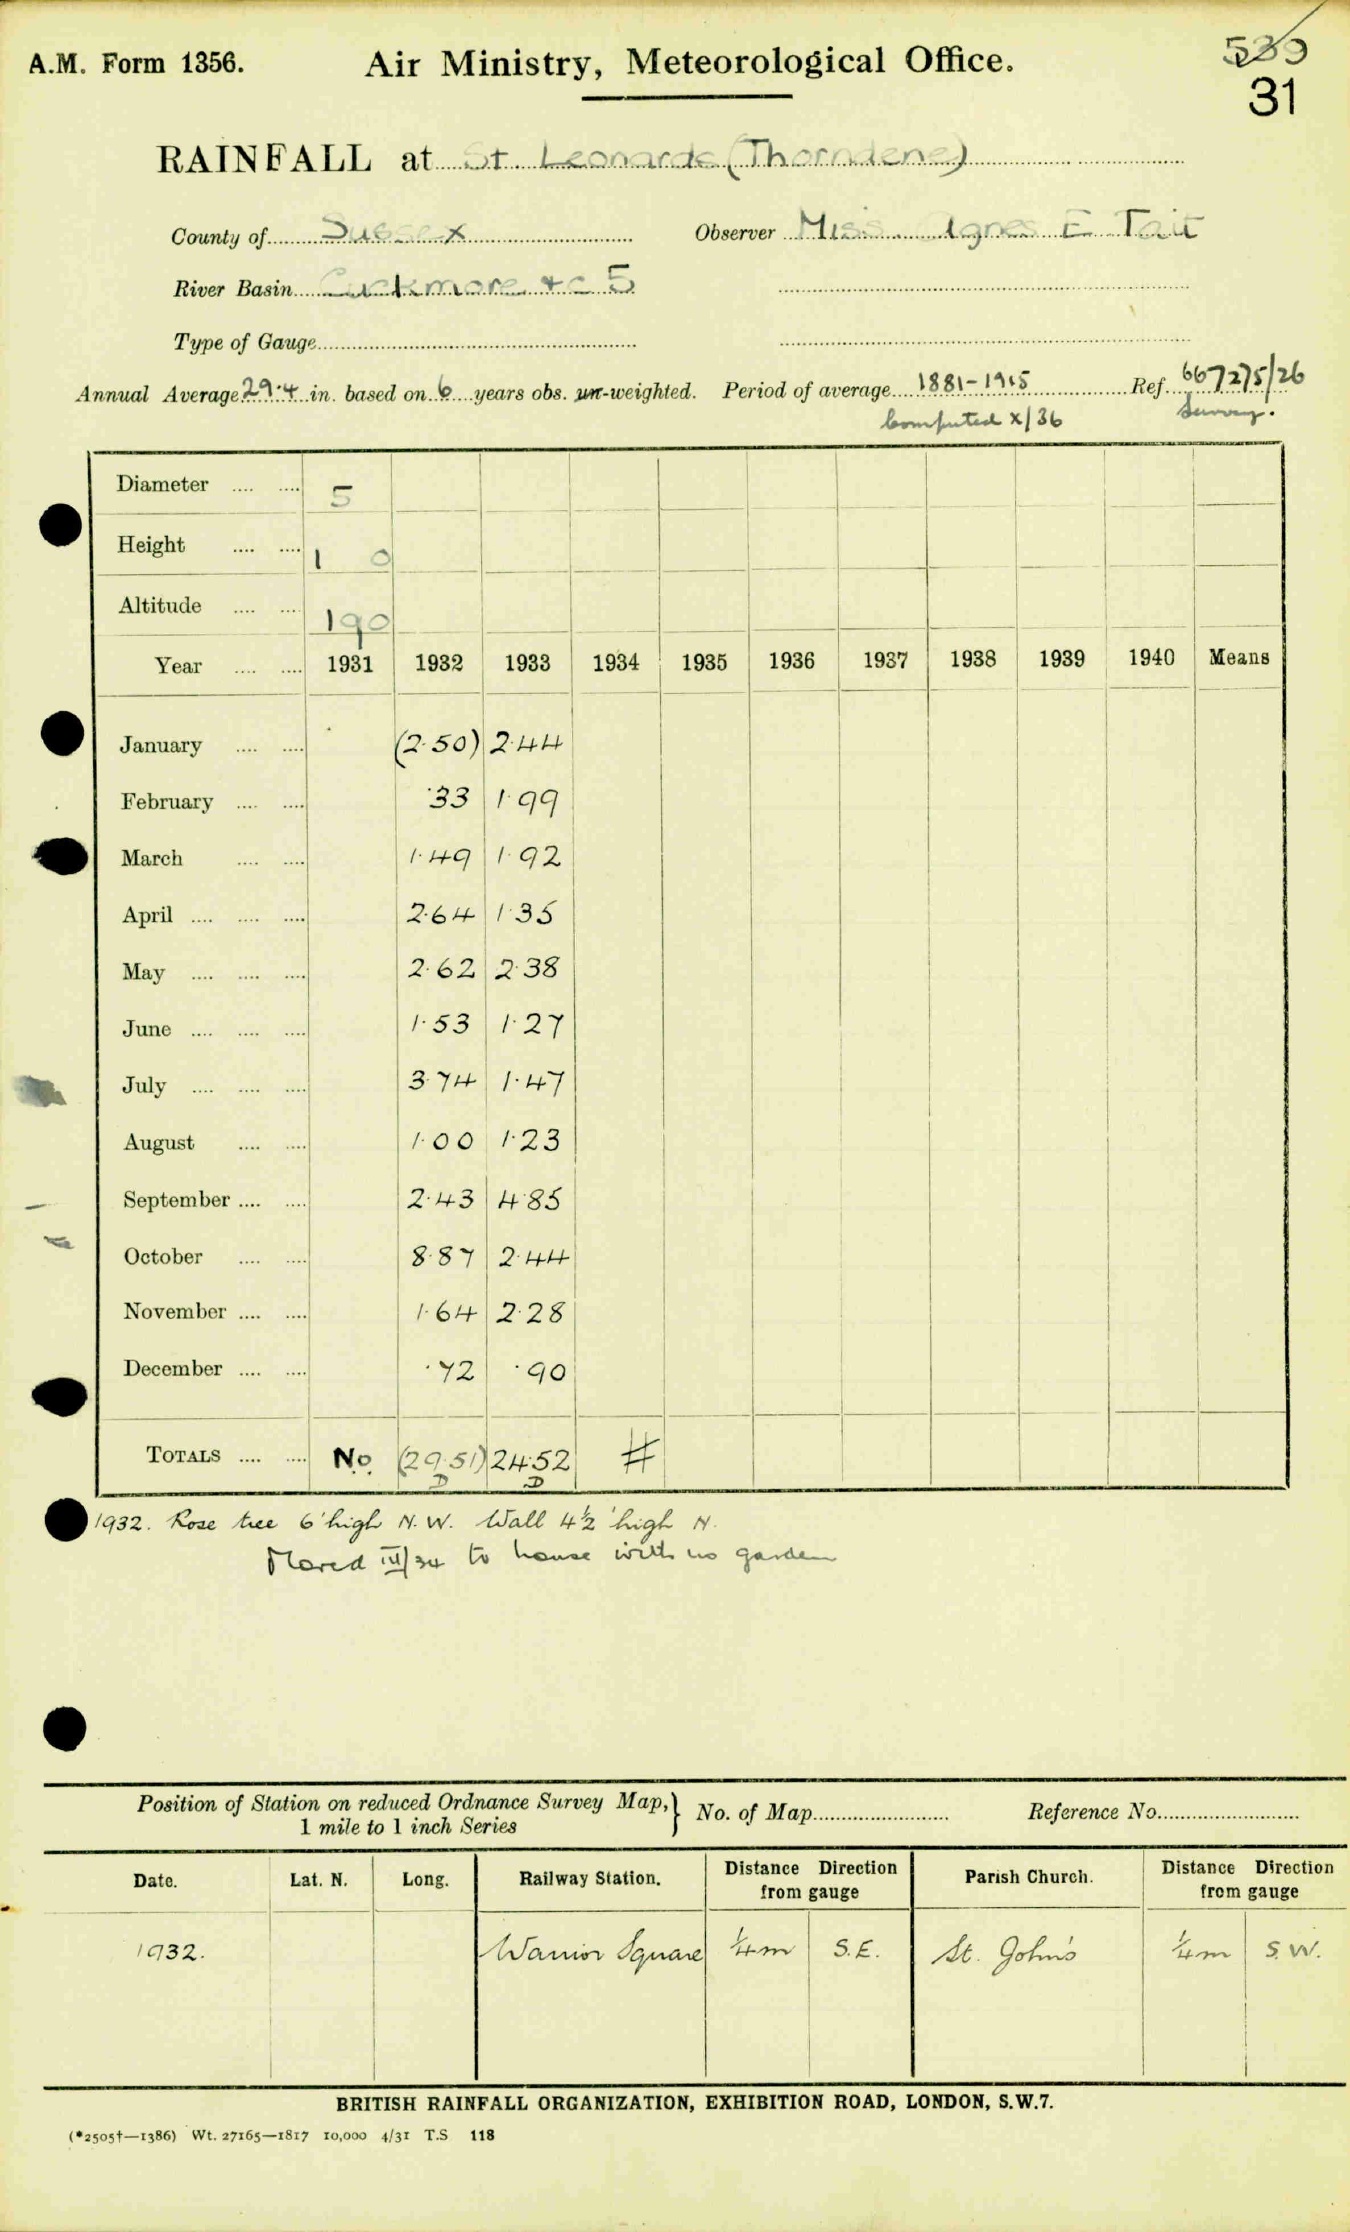 A.M. Form 1356. Air Ministry, Meteorological Office. 539
31
RAINFALL at St. Leonards (Thorndene)
County of Sussex Observer Miss. Agnes E Tait
River Basin Cuckmere &c 5
Type of Gauge
Annual Average 29.4 in. based on 6 years obs. un-weighted. Period of average 1881-1915 Ref. 667275/26
Computed X/36 Survey.
Diameter 5
Height 1 0
Altitude 190
Year 1931 1932 1933 1934 1935 1936 1937 1938 1939 1940 Means
January (2.50) 2.44
February .33 1.99
March 1.49 1.92
April 2.64 1.35
May 2.62 2.38
June 1.53 1.27
July 3.74 1.47
August 1.00 1.23
September 2.43 4.85
October 8.87 2.44
November 1.64 2.28
December .72 .90
TOTALS No. (29.51) 24.52 #
D D
1932. Rose tree 6' high N.W. Wall 4½' high N.
Moved III/34 to house with no garden
Position of Station on reduced Ordnance Survey Map, } No. of Map Reference No.
1 mile to 1 inch Series
Date. Lat. N. Long. Railway Station. Distance Direction from gauge Parish Church. Distance Direction from gauge
1932. Warrior Square ¼m S.E. St. John's ¼m S.W.
BRITISH RAINFALL ORGANIZATION, EXHIBITION ROAD, LONDON, S.W.7.
(*2505†—1386) Wt. 27165—1817 10,000 4/31 T.S 118